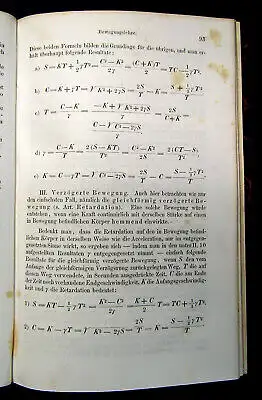 Bewegungslehre. 93
Diese beiden Formeln bilden die Grundlage für die übrigen, und man er-
hält überhaupt folgende Resultate:
a) S = KT + 1/2 γT² = (C² — K²)/2γ = (C + K)T/2 = TC — 1/2 γT²
b) C = K + γT = √K² + 2γS = 2S/T — K = (S + 1/2 γT²)/T
c) T = (C — K)/γ = (—K + √K² + 2γS)/γ = 2S/(C + K)
d) γ = (C — K)/T = 2(S — KT)/T² = (C² — K²)/2S = 2(CT — S)/T²
e) K = C — γT = √C² — 2γS = 2S/T — C = (S — 1/2 γT²)/T
III. Verzögerte Bewegung. Auch hier betrachten wir nur
den einfachsten Fall, nämlich die gleichförmig verzögerte Be-
wegung (s. Art. Retardation). Eine solche Bewegung würde
entstehen, wenn eine Kraft continuirlich mit derselben Stärke auf einen
in Bewegung befindlichen Körper hemmend einwirkte.
Bedenkt man, dass die Retardation auf den in Bewegung befind-
lichen Körper in derselben Weise wie die Acceleration, nur im entgegen-
gesetzten Sinne wirkt, so ergeben sich — indem man in den unter II. 10
aufgestellten Resultaten γ entgegengesetzt nimmt — einfach folgende
Resultate für die gleichförmig verzögerte Bewegung, wenn S den vom
Anfange der gleichförmigen Verzögerung zurückgelegten Weg, T die auf
diesen Weg verwendete, in Secunden ausgedrückte Zeit, C die am Ende
der Zeit T noch vorhandene Endgeschwindigkeit, K die Anfangsgeschwindig-
keit und γ die Retardation bedeutet:
1) S = KT — 1/2 γT² = (K² — C²)/2γ = (K + C)/2 T = TC + 1/2 γT²
2) C = K — γT = √K² — 2γS = 2S/T — K = (S — 1/2 γT²)/T